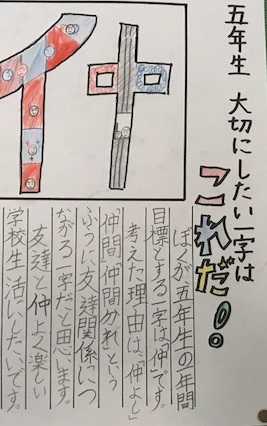 五年生 大切にしたい一字は
これだ!
仲
ぼくが五年生の一年間
目標とする一字は「仲」です。
考えた理由は、「仲よし」
「仲間」「仲間分れ」という
ふうに友達関係につい
ながる一字だと思います。
友達と仲よく楽しい
学校生活にしたいです。